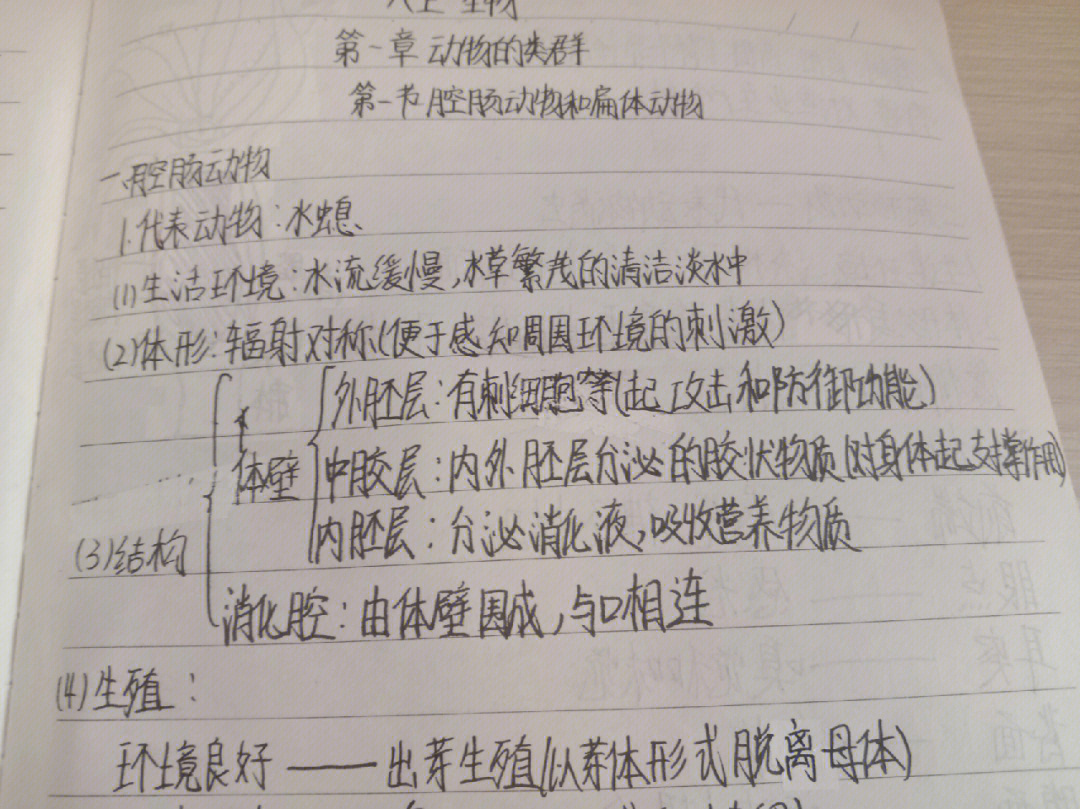 八上 生物
第一章 动物的类群
第一节 腔肠动物和扁体动物
一.腔肠动物
1.代表动物:水螅
(1)生活环境:水流缓慢,水草繁茂的清洁淡水中
(2)体形:辐射对称(便于感知周围环境的刺激)
外胚层:有刺细胞等(起攻击和防御功能)
体壁 中胶层:内外胚层分泌的胶状物质(对身体起支撑作用)
内胚层:分泌消化液,吸收营养物质
(3)结构
消化腔:由体壁围成,与口相连
(4)生殖:
环境良好——出芽生殖(以芽体形式脱离母体)